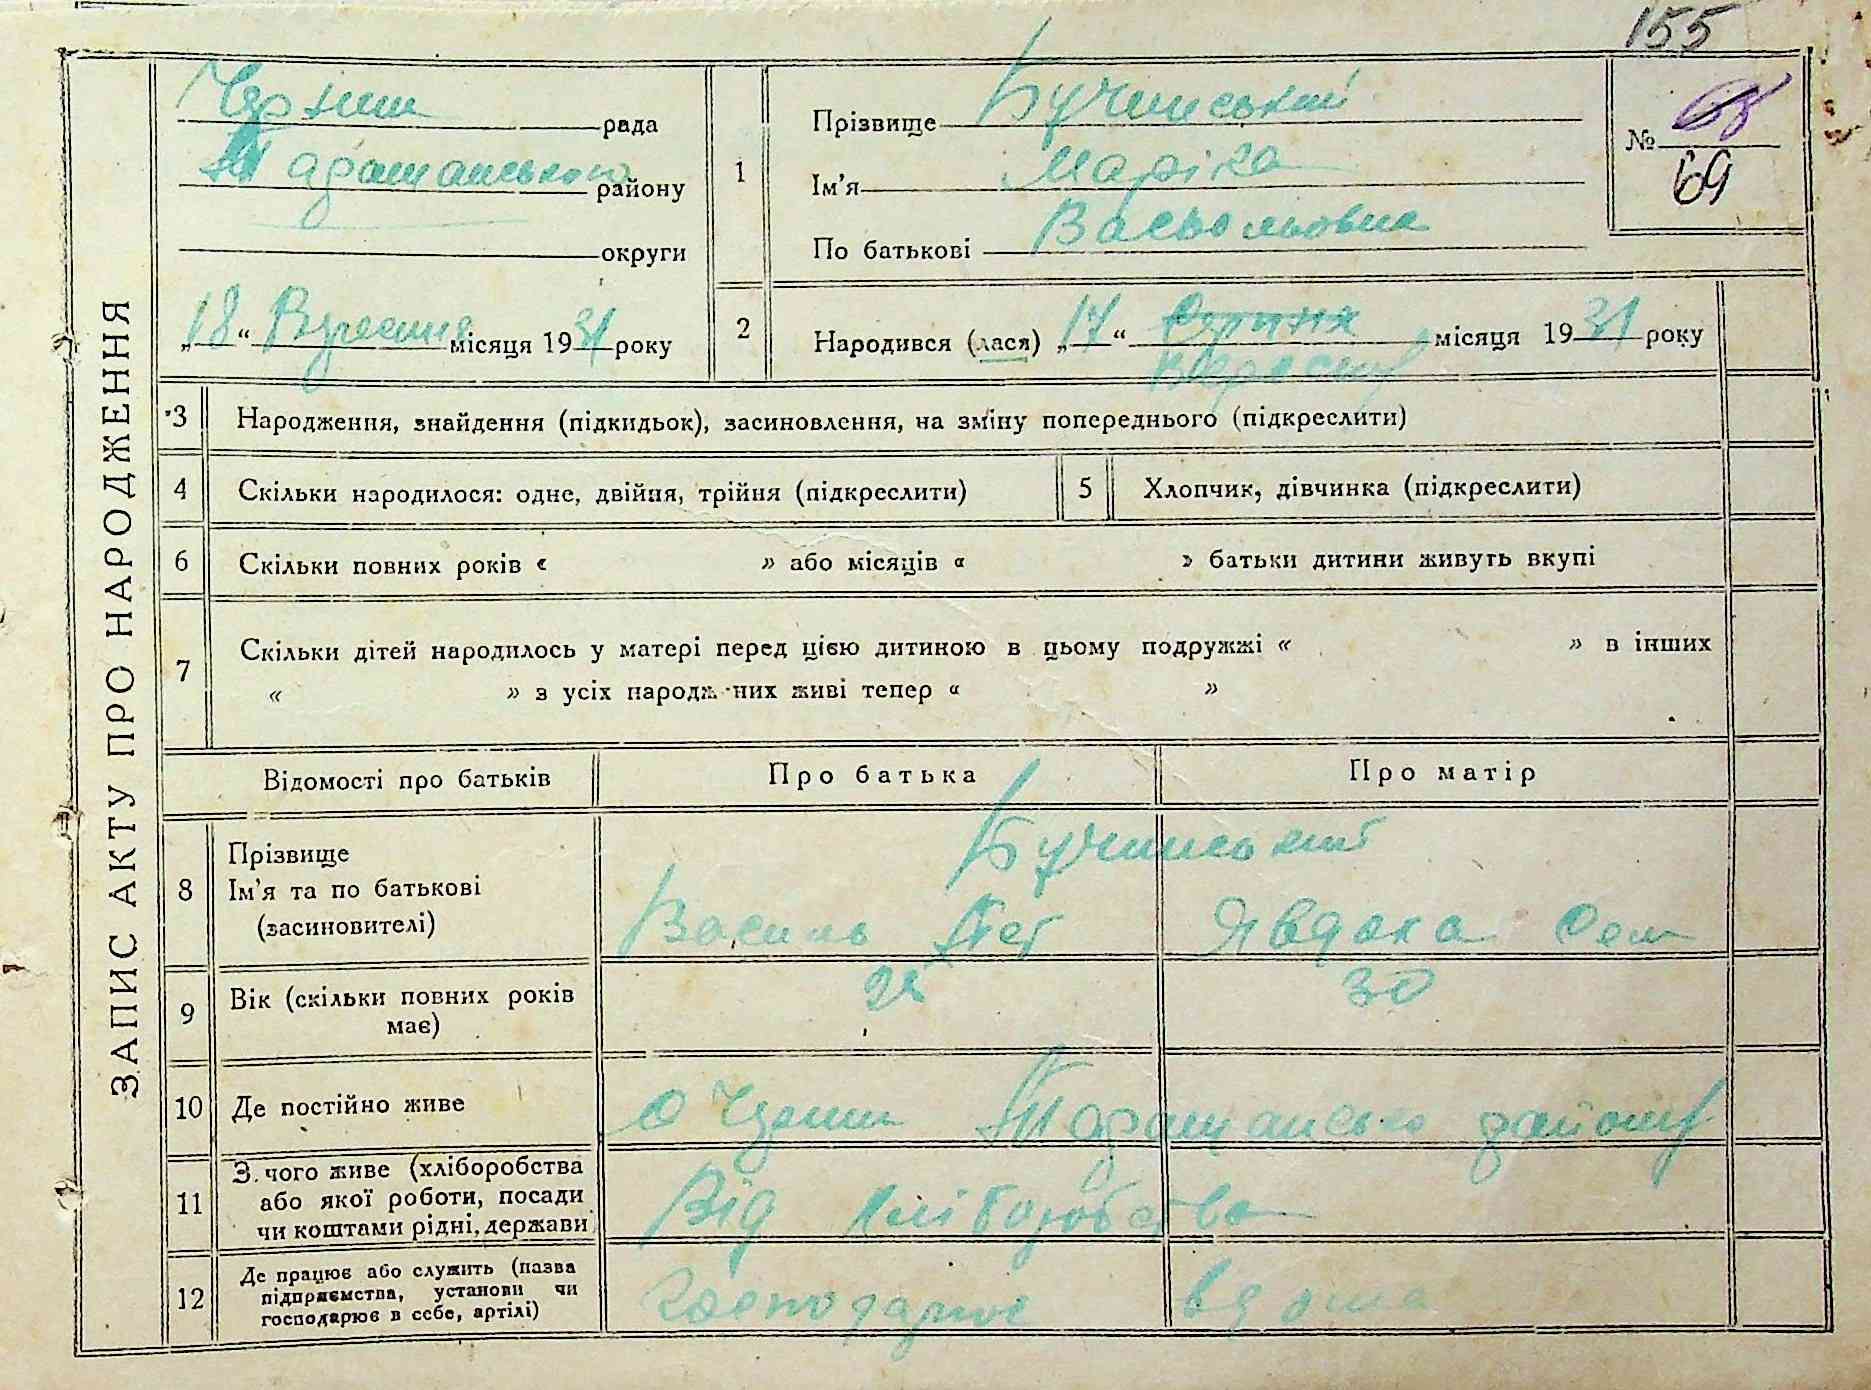 155
ЗАПИС АКТУ ПРО НАРОДЖЕННЯ
рада
Таращанського району
округи
„18“ Вересня місяця 1931 року
1
Прізвище Бучинський
Ім'я Маріка
По батькові Васьольовна
№ 68
69
2
Народився (лася) „17“ Серпня місяця 1931 року
Вересня
3 Народження, знайдення (підкидьок), засиновлення, на зміну попереднього (підкреслити)
4 Скільки народилося: одне, двійня, трійня (підкреслити)
5 Хлопчик, дівчинка (підкреслити)
6 Скільки повних років « » або місяців « » батьки дитини живуть вкупі
7 Скільки дітей народилось у матері перед цією дитиною в цьому подружжі « » в інших
« » з усіх народж них живі тепер « »
Відомості про батьків Про батька Про матір
8 Прізвище
Ім'я та по батькові
(засиновителі)
Бучинський
Василь Пет Явдоха Сем
9 Вік (скільки повних років
має)
30
10 Де постійно живе Таращансько району
11 З чого живе (хліборобства
або якої роботи, посади
чи коштами рідні, держави
Від хліборобства
12 Де працює або служить (назва
підприємства, установи чи
господарює в себе, артілі)
Господарює вдома